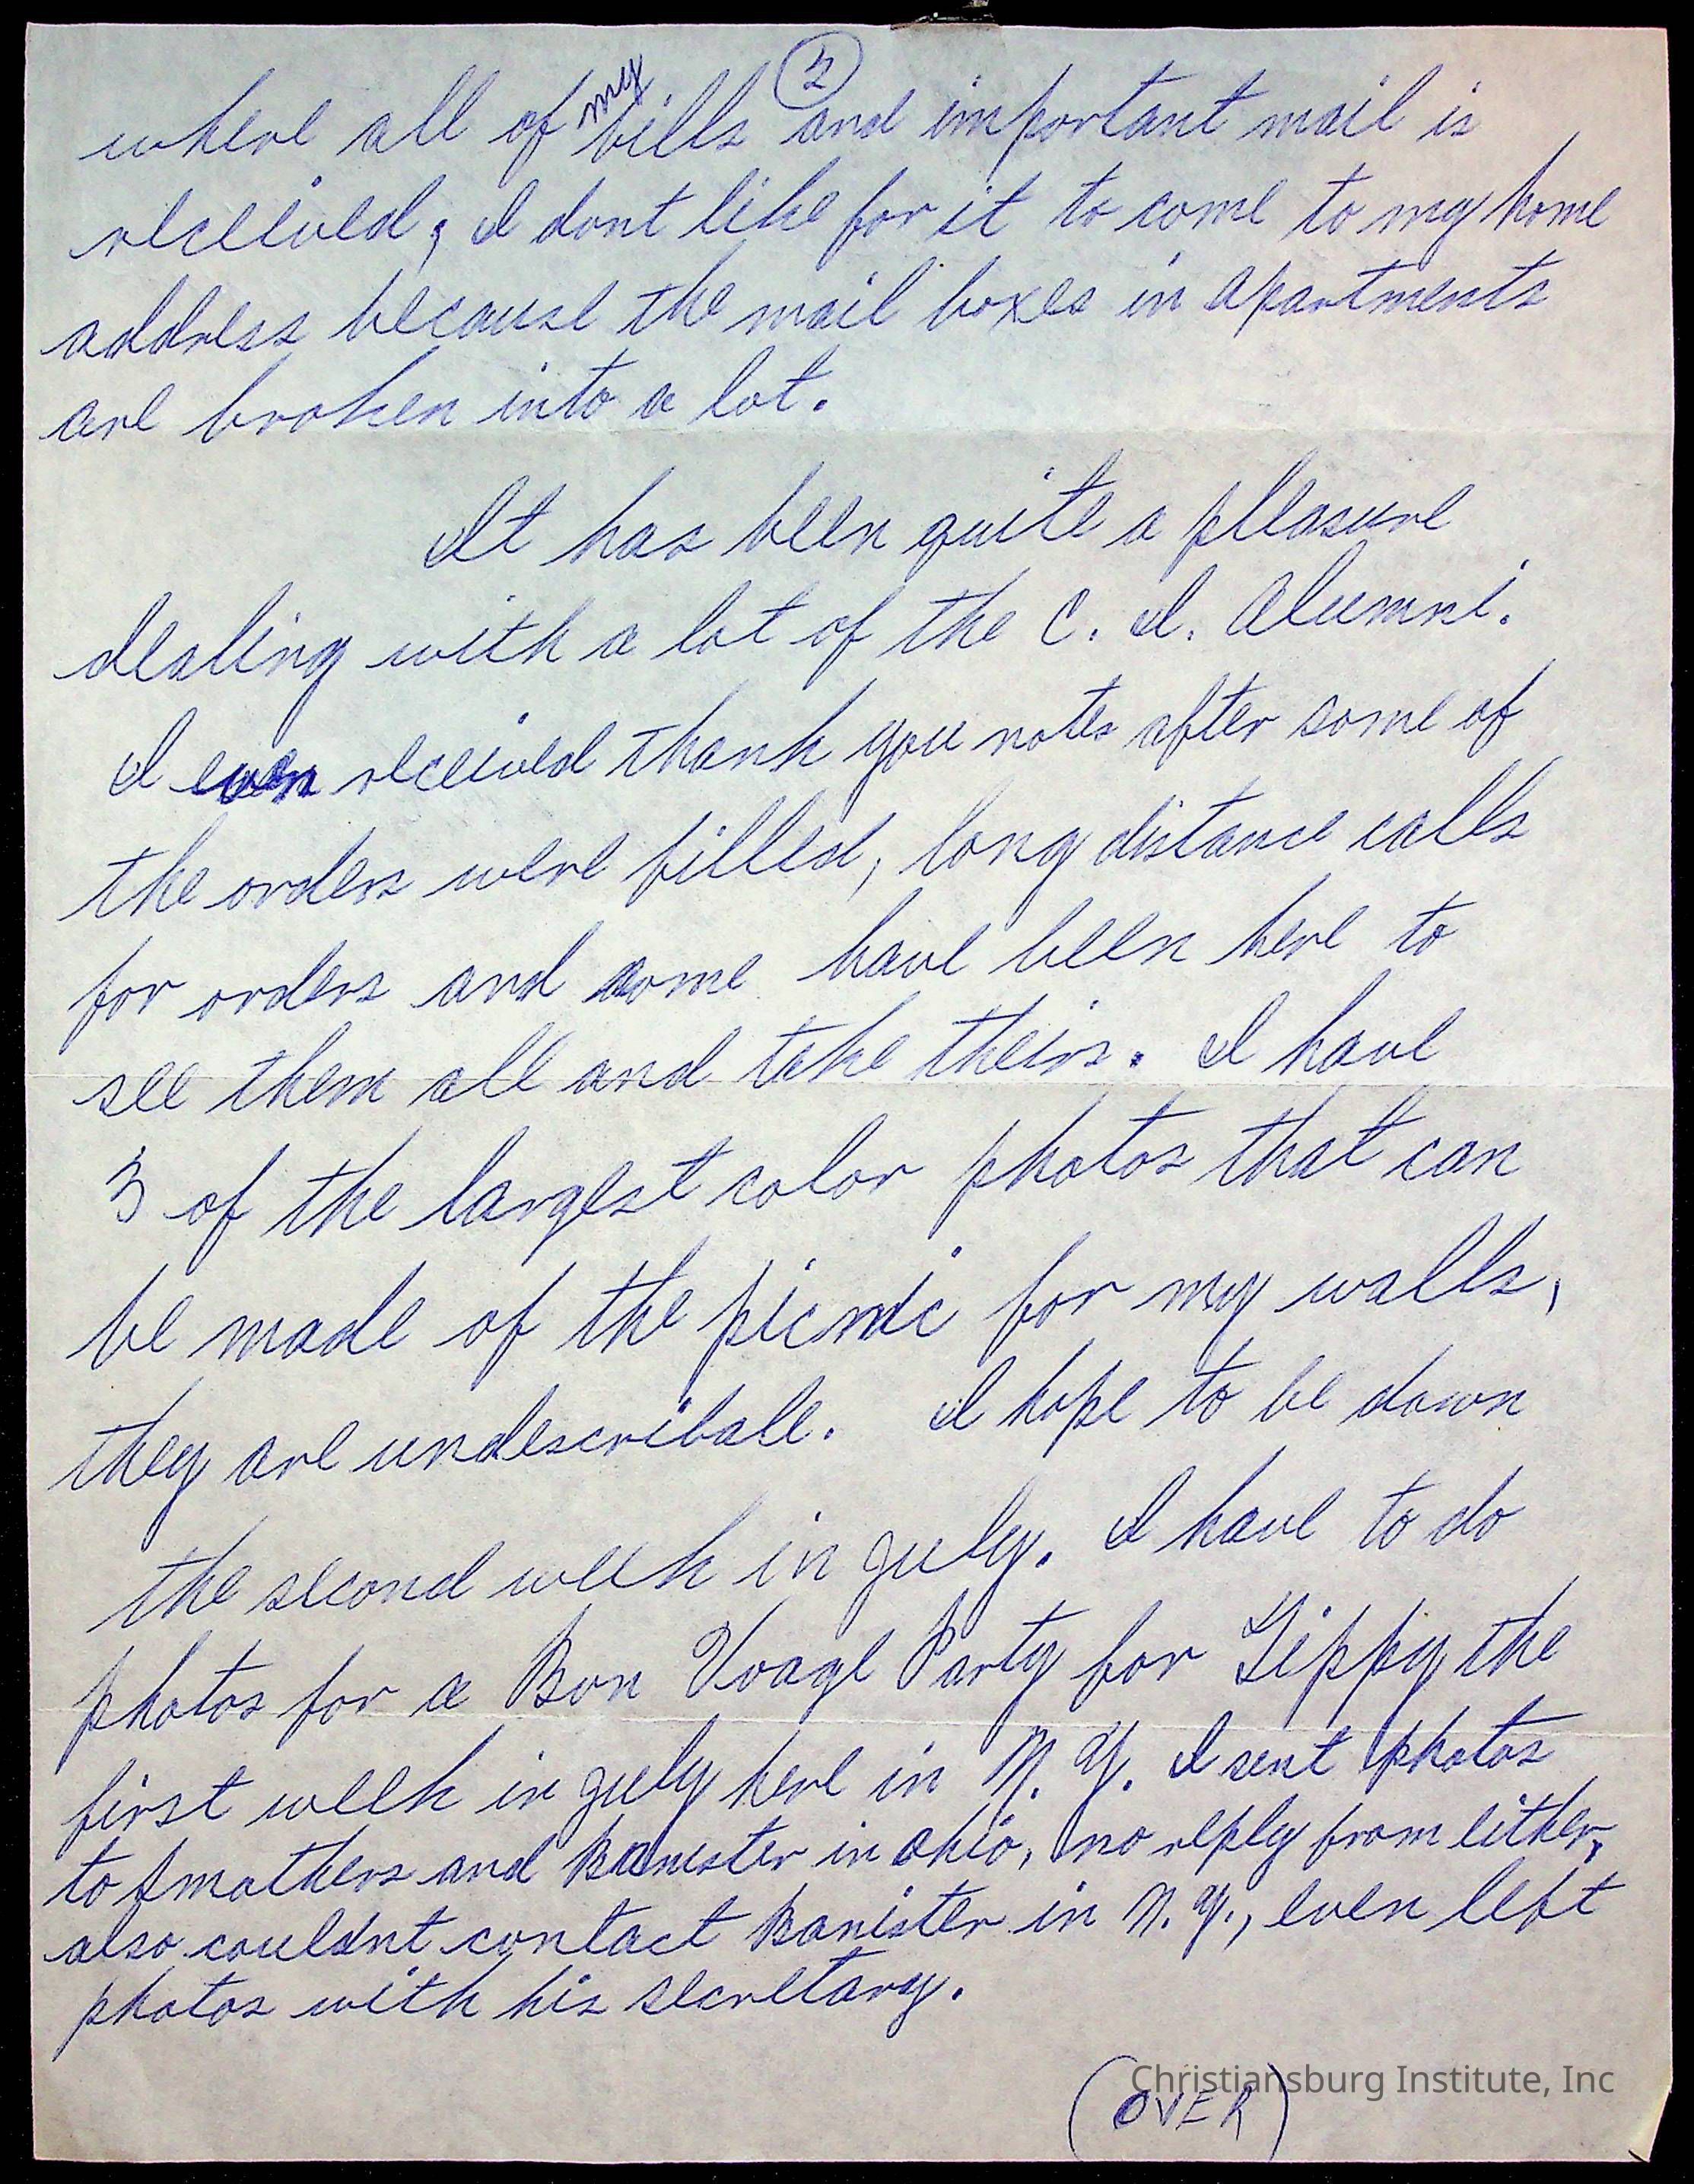 2
where all of my bills and important mail is
received; I dont like for it to come to my home
address because the mail boxes in apartments
are broken into a lot.
It has been quite a pleasure
dealing with a lot of the C. I. Alumni.
I even received thank you notes after some of
the orders were filled, long distance calls
for orders and some have been here to
see them all and take theirs. I have
3 of the largest color photos that can
be made of the picnic for my walls,
they are undescribale. I hope to be down
the second week in July. I have to do
photos for a Bon Voage Party for Zippy the
first week in July here in N. Y. I sent photos
to Smothers and Banister in Ohio, no reply from either,
also couldnt contact Banister in N. Y., even left
photos with his secretary.
(OVER)
Christiansburg Institute, Inc